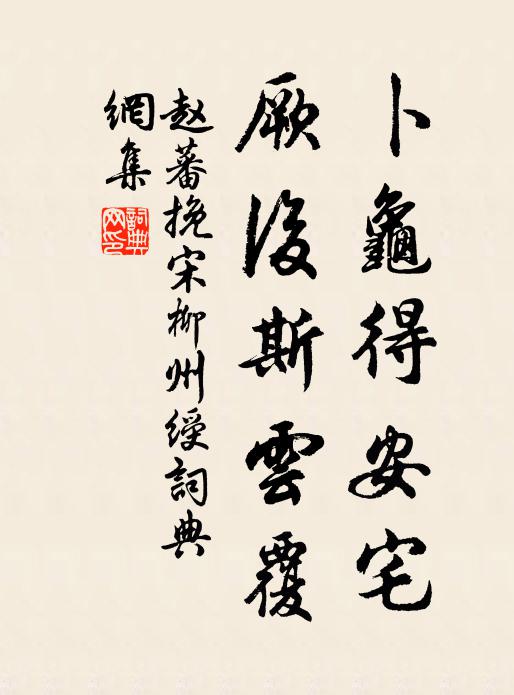 卜龜得安宅
厥後斯雲覆
赵蕃挽宋柳州綬詞典
網集
詞典
网印